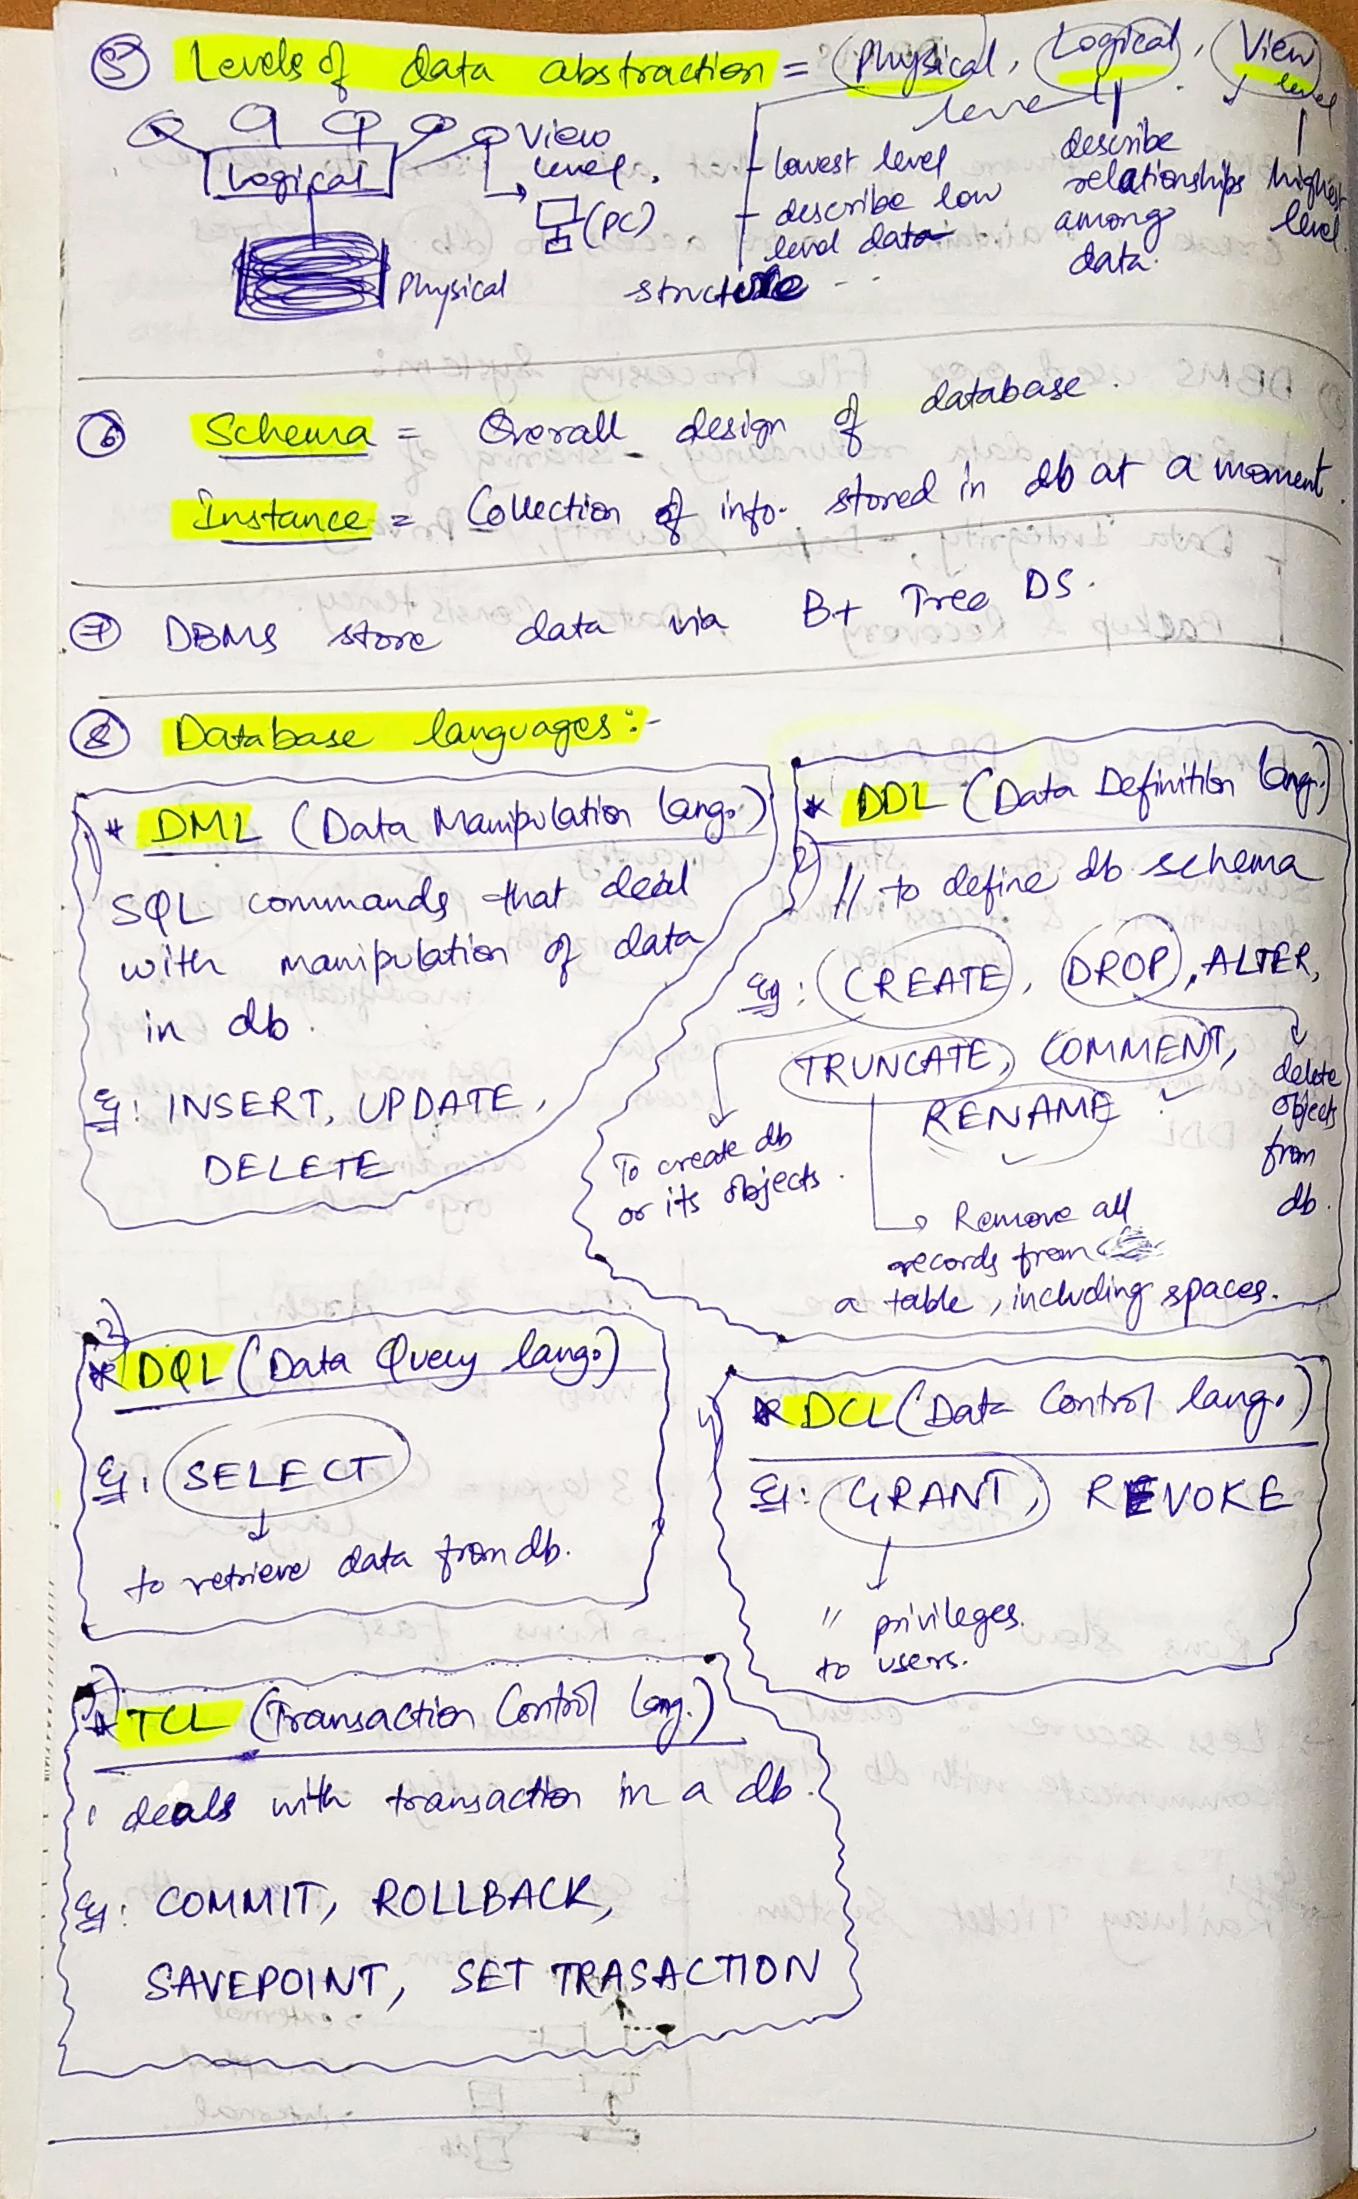 ⑤ Levels of data abstraction = Physical, Logical, View
level
level
View
level.
Logical
(PC)
Physical
- lowest level
- describe low
level data
structure
describe
relationships
among
data.
highest
level.
⑥ Schema = Overall design of database.
Instance = Collection of info. stored in db at a moment.
⑦ DBMS store data via B+ Tree DS.
⑧ Database languages:-
1) * DML (Data Manipulation lang.)
SQL commands that deal
with manipulation of data
in db.
Eg: INSERT, UPDATE,
DELETE
2) * DDL (Data Definition lang.)
// to define db schema
Eg: CREATE, DROP, ALTER,
TRUNCATE, COMMENT,
RENAME
To create db
or its objects.
delete
objects
from
db.
Remove all
records from
a table, including spaces.
3) * DQL (Data Query lang.)
Eg: SELECT
to retrieve data from db.
4) * DCL (Data Control lang.)
Eg: GRANT, REVOKE
" privileges.
to users.
5) * TCL (Transaction Control lang.)
deals with transaction in a db.
Eg: COMMIT, ROLLBACK,
SAVEPOINT, SET TRASACTION